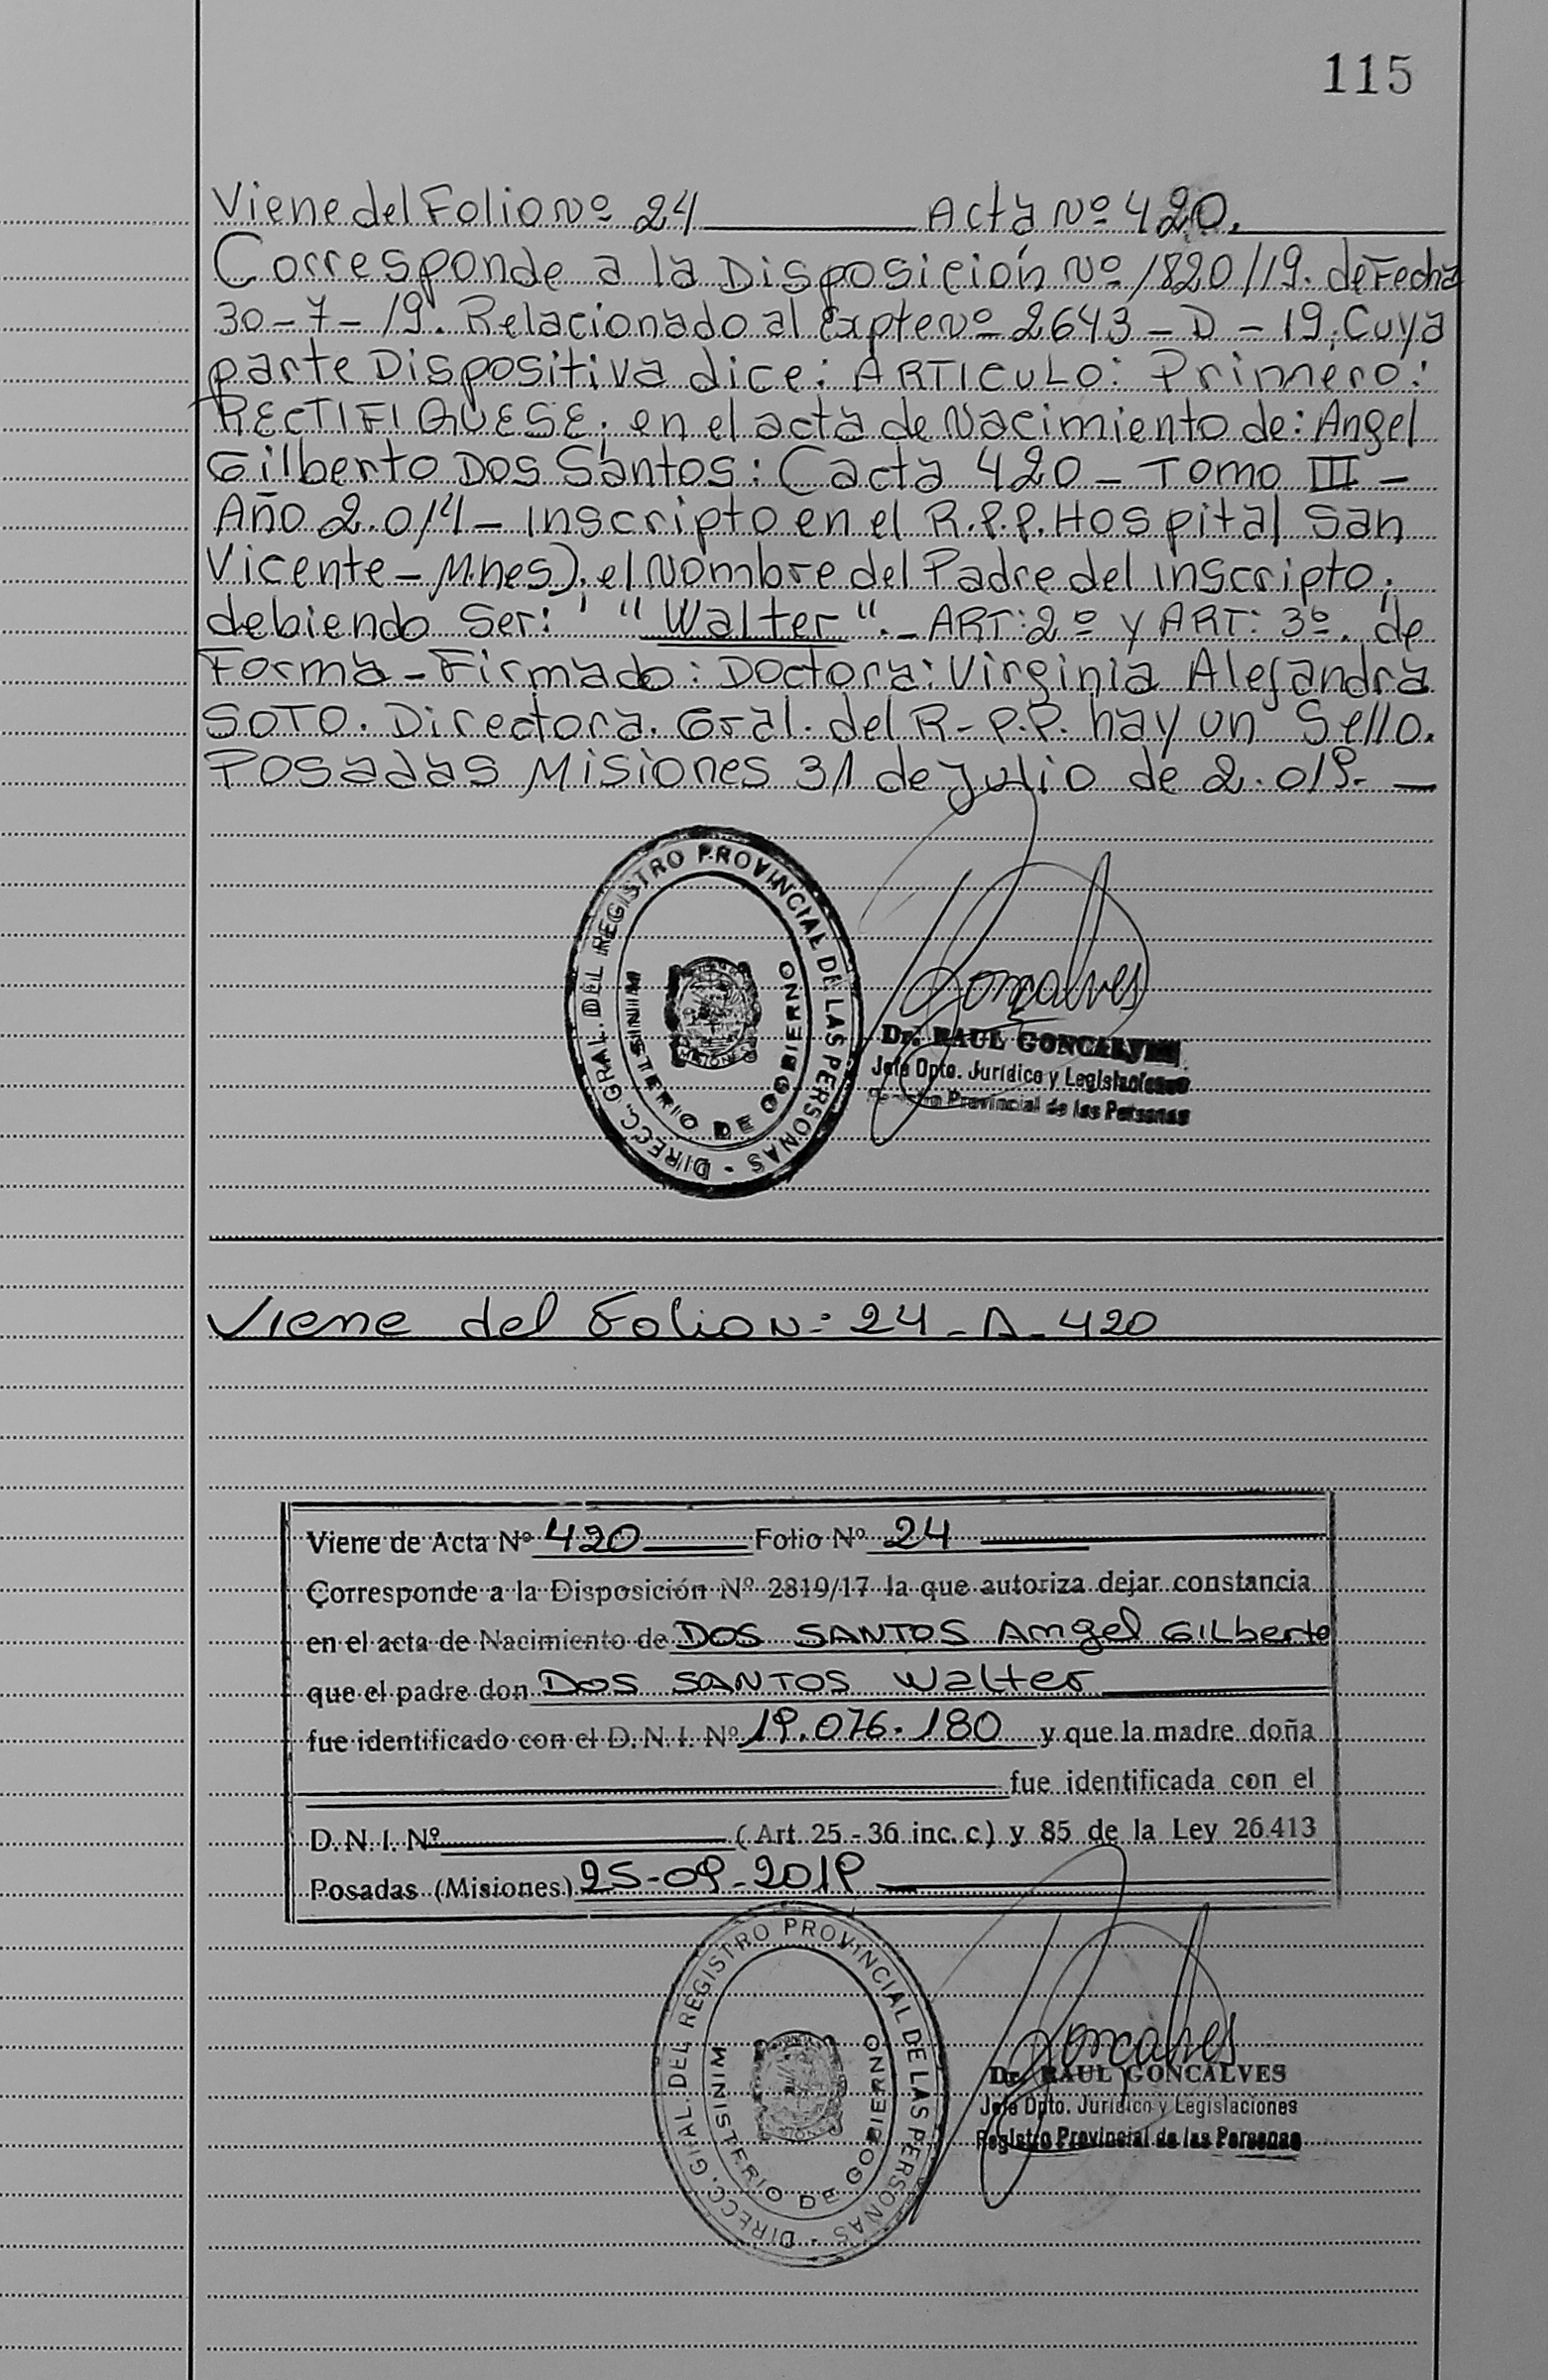 115
Viene del Folio Nº 24 Acta Nº 420.
Corresponde a la Disposición Nº 1820/19. de Fecha
30-7-19. Relacionado al Expte Nº 2643-D-19; Cuya
parte Dispositiva dice: ARTICULO: Primero:
RECTIFIQUESE; en el acta de Nacimiento de: Angel
Gilberto Dos Santos: (acta 420 - Tomo III -
Año 2.014 - Inscripto en el R.P.P. Hospital San
Vicente - Mnes). el Nombre del Padre del inscripto;
debiendo Ser: "Walter". - ART: 2º y ART: 3º. de
Forma - Firmado: Doctora: Virginia Alejandra
SOTO. Directora. Gral. del R-P.P. hay un Sello.
Posadas Misiones 31 de Julio de 2.019. -
DIRECC. GRAL. DEL REGISTRO PROVINCIAL DE LAS PERSONAS -
MINISTERIO DE GOBIERNO
MISIONES
Goncalves
Dr. RAUL GONCALVES
Jefe Dpto. Jurídico y Legislaciones
Registro Provincial de las Personas
Viene del Folio N: 24 - A - 420
Viene de Acta Nº 420 Folio Nº 24
Corresponde a la Disposición Nº 2819/17 la que autoriza dejar constancia
en el acta de Nacimiento de DOS SANTOS Angel GILberto
que el padre don DOS SANTOS Walter
fue identificado con el D. N. I. Nº 19.076.180 y que la madre doña
fue identificada con el
D. N. I. Nº (Art. 25 - 36 inc. c) y 85 de la Ley 26.413
Posadas (Misiones) 25-09-2019
DIRECC. GRAL. DEL REGISTRO PROVINCIAL DE LAS PERSONAS -
MINISTERIO DE GOBIERNO
Goncalves
Dr. RAUL GONCALVES
Jefe Dpto. Jurídico y Legislaciones
Registro Provincial de las Personas